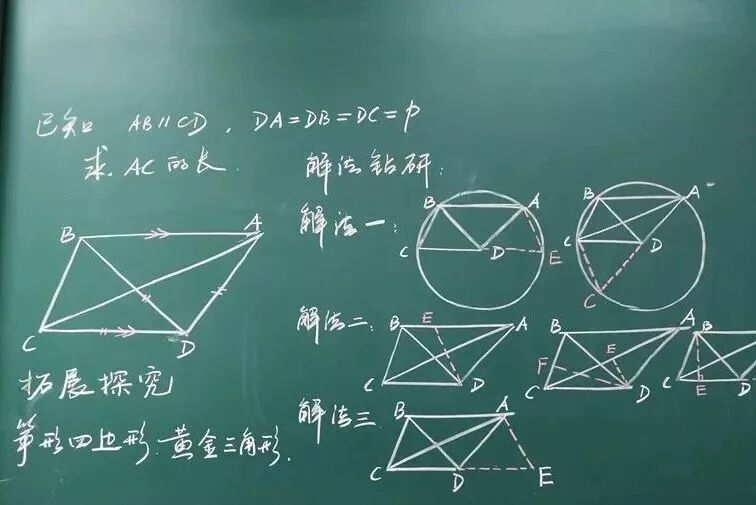 已知 AB∥CD，DA=DB=DC=p
求 AC的长.
解法钻研：
解法一：
B A C D E
B A C D C
B A C D
解法二：
B E A C D
B A F E C D
B C E D
拓展探究
筝形四边形.黄金三角形.
解法三
B A C D E